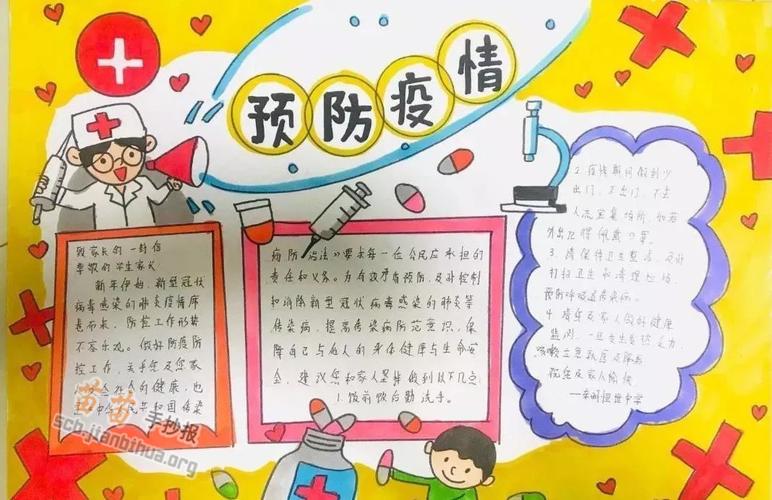 预防疫情
致家长的一封信
尊敬的学生家长
新年伊始,新型冠状
病毒感染的肺炎疫情席
卷而来,防控工作形势
不容乐观。做好防疫防
控工作,关乎您及您家
人的健康,也
共和国传染
病防治法》要求每一位公民应承担的
责任和义务。为有效矛盾预防,及时控制
和消除新型冠状病毒感染的肺炎等
传染病,提高传染病防范意识,保
障自己与他人的身体健康与生命安
全,建议您和家人坚持做到以下几点:
1.饭前饭后勤洗手。
2.疫情期间做到少
出门,不出门,不去
人流密集场所,如若
外出记得佩戴口罩。
3.请保持卫生整洁,及时
打扫卫生和清理垃圾,
预防呼吸道传染病。
4.请每及家人做好健康
监测,一旦发生发热乏力
咳嗽立马就医
祝您及家人愉快
苗苗手抄报
scb.jianbihua.org